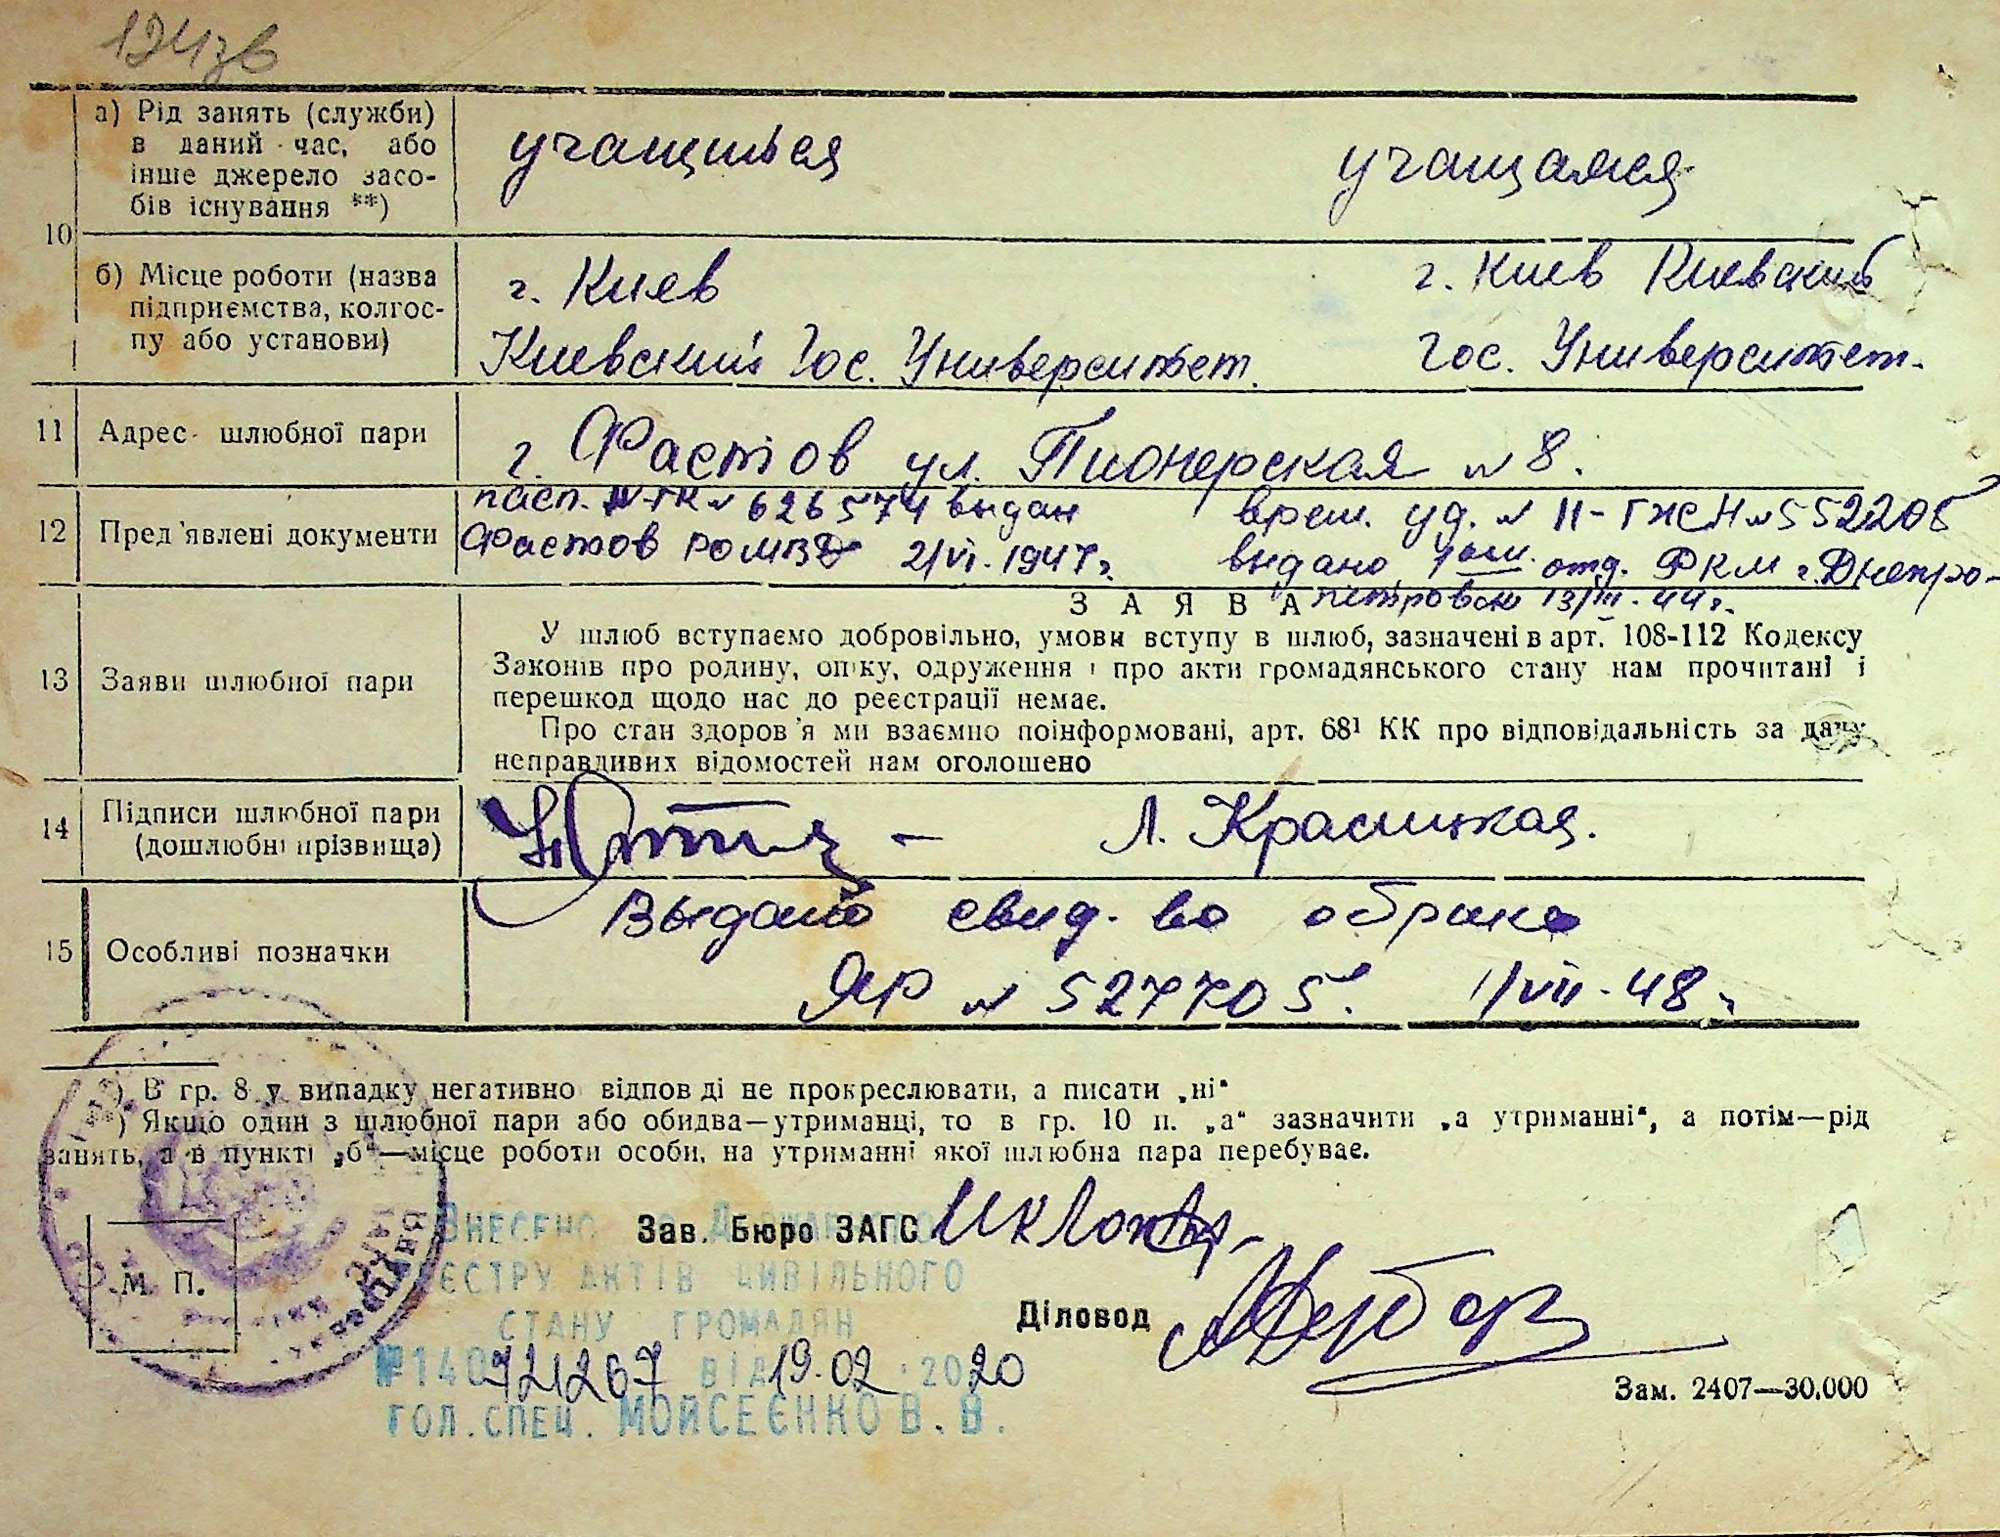 а) Рід занять (служби) в даний час, або інше джерело засобів існування **)
учащийся учащаяся
10
б) Місце роботи (назва підприємства, колгоспу або установи)
г. Киев г. Киев Киевский
Киевский Гос. Университет. Гос. Университет.
11 Адрес шлюбної пари
г. Фастов ул. Пионерская № 8.
12 Пред'явлені документи
пасп. № 626574 выдан врем. уд. № II-ГЖСН № 552205
Фастов РОМВД 2/VI. 1947 г. выдано 1 ым отд. РКМ г. Днепро-
петровск 13/III. 44 г.
ЗАЯВА
13 Заяви шлюбної пари
У шлюб вступаємо добровільно, умови вступу в шлюб, зазначені в арт. 108-112 Кодексу
Законів про родину, опіку, одруження і про акти громадянського стану нам прочитані і
перешкод щодо нас до реєстрації немає.
Про стан здоров'я ми взаємно поінформовані, арт. 68¹ КК про відповідальність за дачу
неправдивих відомостей нам оголошено
14 Підписи шлюбної пари (дошлюбні прізвища)
Л. Красицкая.
15 Особливі позначки
Выдано свид-во о браке
ЯР № 527705. 1/VII-48 г.
*) В гр. 8 у випадку негативно відповіді не прокреслювати, а писати „ні"
**) Якщо один з шлюбної пари або обидва—утриманці, то в гр. 10 п. „а" зазначити „а утриманні", а потім—рід
занять, а в пункті „б"—місце роботи особи, на утриманні якої шлюбна пара перебуває.
Зав. Бюро ЗАГС
М. П.
Діловод
ВНЕСЕНО ДО ДЕРЖАВНОГО
РЕЄСТРУ АКТІВ ЦИВІЛЬНОГО
СТАНУ ГРОМАДЯН
ВІД 19.02.2020
ГОЛ. СПЕЦ. МОЙСЕЄНКО В. В.
Зам. 2407—30.000